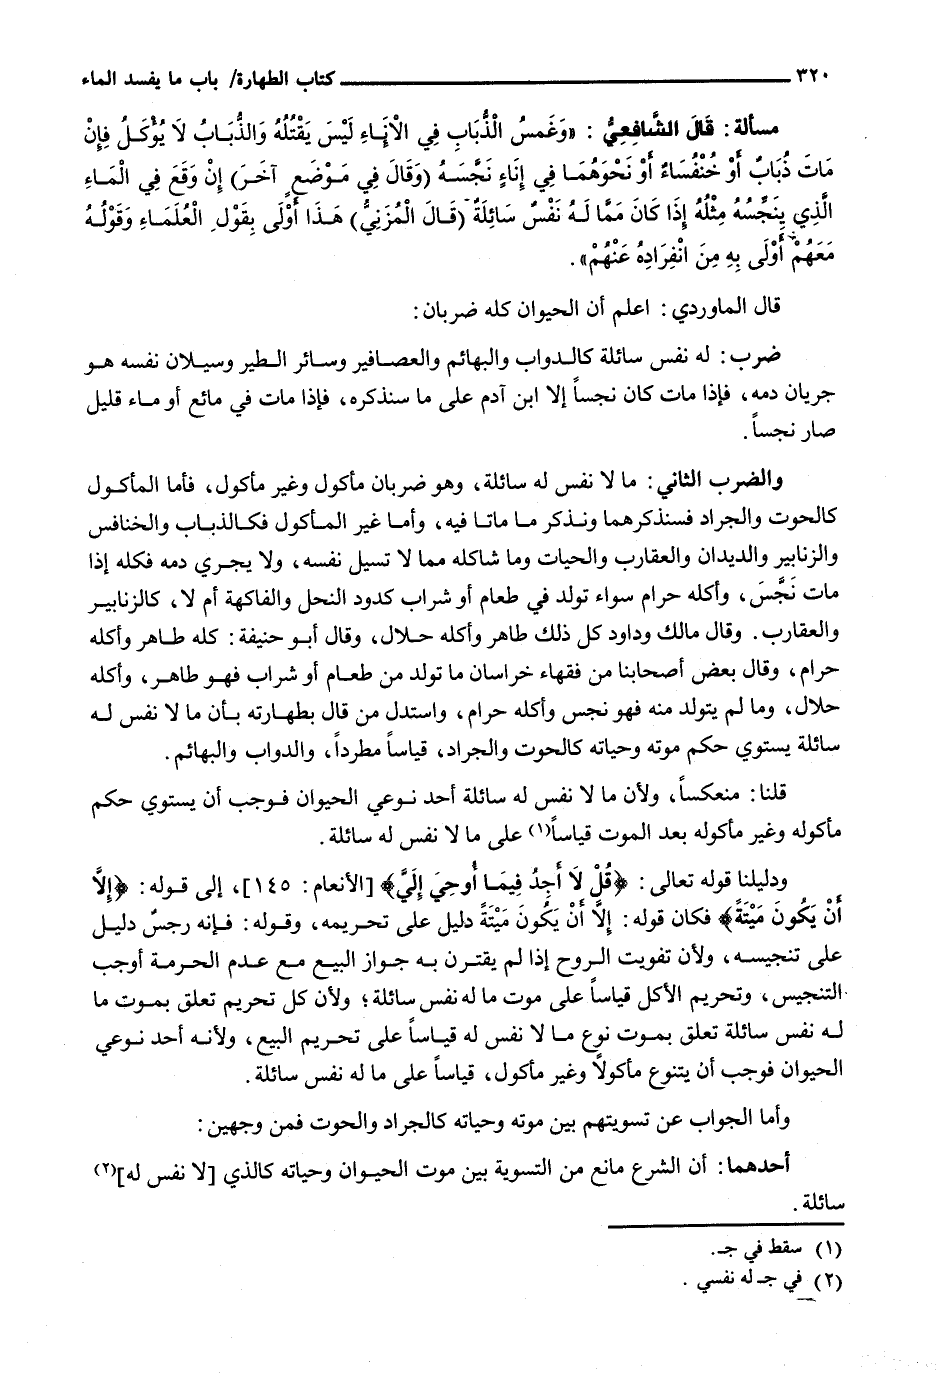 ٣٢٠ كتاب الطهارة/ باب ما يفسد الماء
مسألة: قَالَ الشَّافِعِيُّ : «وَغَمسُ الْذُّبَابِ فِي الْإِنَاءِ لَيْسَ يَقْتُلُهُ وَالذُّبَابُ لَا يُؤْكَلُ فِإِنْ
مَاتَ ذُبَابٌ أَوْ خُنْفُسَاءُ أَوْ نَحْوَهُمَا فِي إِنَاءٍ نَجَّسَهُ (وَقَالَ فِي مَوْضَعٍ آخَرَ) إِنْ وَقَعَ فِي الْمَاءِ
الَّذِي يِنَجِّسُهُ مِثْلُهُ إِذَا كَانَ مَمَّا لَهُ نَفْسٌ سَائِلَةٌ (قَالَ الْمُزَنِيُّ) هَذَا أَوْلَى بِقَوْلِ الْعُلَمَاءِ وَقَوْلُهُ
مَعَهُمْ أَوْلَى بِهِ مِنَ انْفِرَادِهُ عَنْهُمْ».
قال الماوردي: اعلم أن الحيوان كله ضربان:
ضرب: له نفس سائلة كالدواب والبهائم والعصافير وسائر الطير وسيلان نفسه هو
جريان دمه، فإذا مات كان نجساً إلا ابن آدم على ما سنذكره، فإذا مات في مائع أو ماء قليل
صار نجساً.
والضرب الثاني: ما لا نفس له سائلة، وهو ضربان مأكول وغير مأكول، فأما المأكول
كالحوت والجراد فسنذكرهما ونذكر ما ماتا فيه، وأما غير المأكول فكالذباب والخنافس
والزنابير والديدان والعقارب والحيات وما شاكله مما لا تسيل نفسه، ولا يجري دمه فكله إذا
مات نَجَّسَ، وأكله حرام سواء تولد في طعام أو شراب كدود النحل والفاكهة أم لا، كالزنابير
والعقارب. وقال مالك وداود كل ذلك طاهر وأكله حلال، وقال أبو حنيفة: كله طاهر وأكله
حرام، وقال بعض أصحابنا من فقهاء خراسان ما تولد من طعام أو شراب فهو طاهر، وأكله
حلال، وما لم يتولد منه فهو نجس وأكله حرام، واستدل من قال بطهارته بأن ما لا نفس له
سائلة يستوي حكم موته وحياته كالحوت والجراد، قياساً مطرداً، والدواب والبهائم.
قلنا: منعكساً، ولأن ما لا نفس له سائلة أحد نوعي الحيوان فوجب أن يستوي حكم
مأكوله وغير مأكوله بعد الموت قياساً(١) على ما لا نفس له سائلة.
ودليلنا قوله تعالى: ﴿قُلْ لَا أَجِدُ فِيمَا أُوحِيَ إِلَيَّ﴾ [الأنعام: ١٤٥]، إلى قوله: ﴿إِلَّا
أَنْ يَكُونَ مَيْتَةً﴾ فكان قوله: إِلَّا أَنْ يَكُونَ مَيْتَةً دليل على تحريمه، وقوله: فإنه رجسٌ دليل
على تنجيسه، ولأن تفويت الروح إذا لم يقترن به جواز البيع مع عدم الحرمة أوجب
التنجيس، وتحريم الأكل قياساً على موت ما له نفس سائلة؛ ولأن كل تحريم تعلق بموت ما
له نفس سائلة تعلق بموت نوع ما لا نفس له قياساً على تحريم البيع، ولأنه أحد نوعي
الحيوان فوجب أن يتنوع مأكولاً وغير مأكول، قياساً على ما له نفس سائلة.
وأما الجواب عن تسويتهم بين موته وحياته كالجراد والحوت فمن وجهين:
أحدهما: أن الشرع مانع من التسوية بين موت الحيوان وحياته كالذي [لا نفس له](٢)
سائلة.
(١) سقط في جـ.
(٢) في جـ له نفسي .